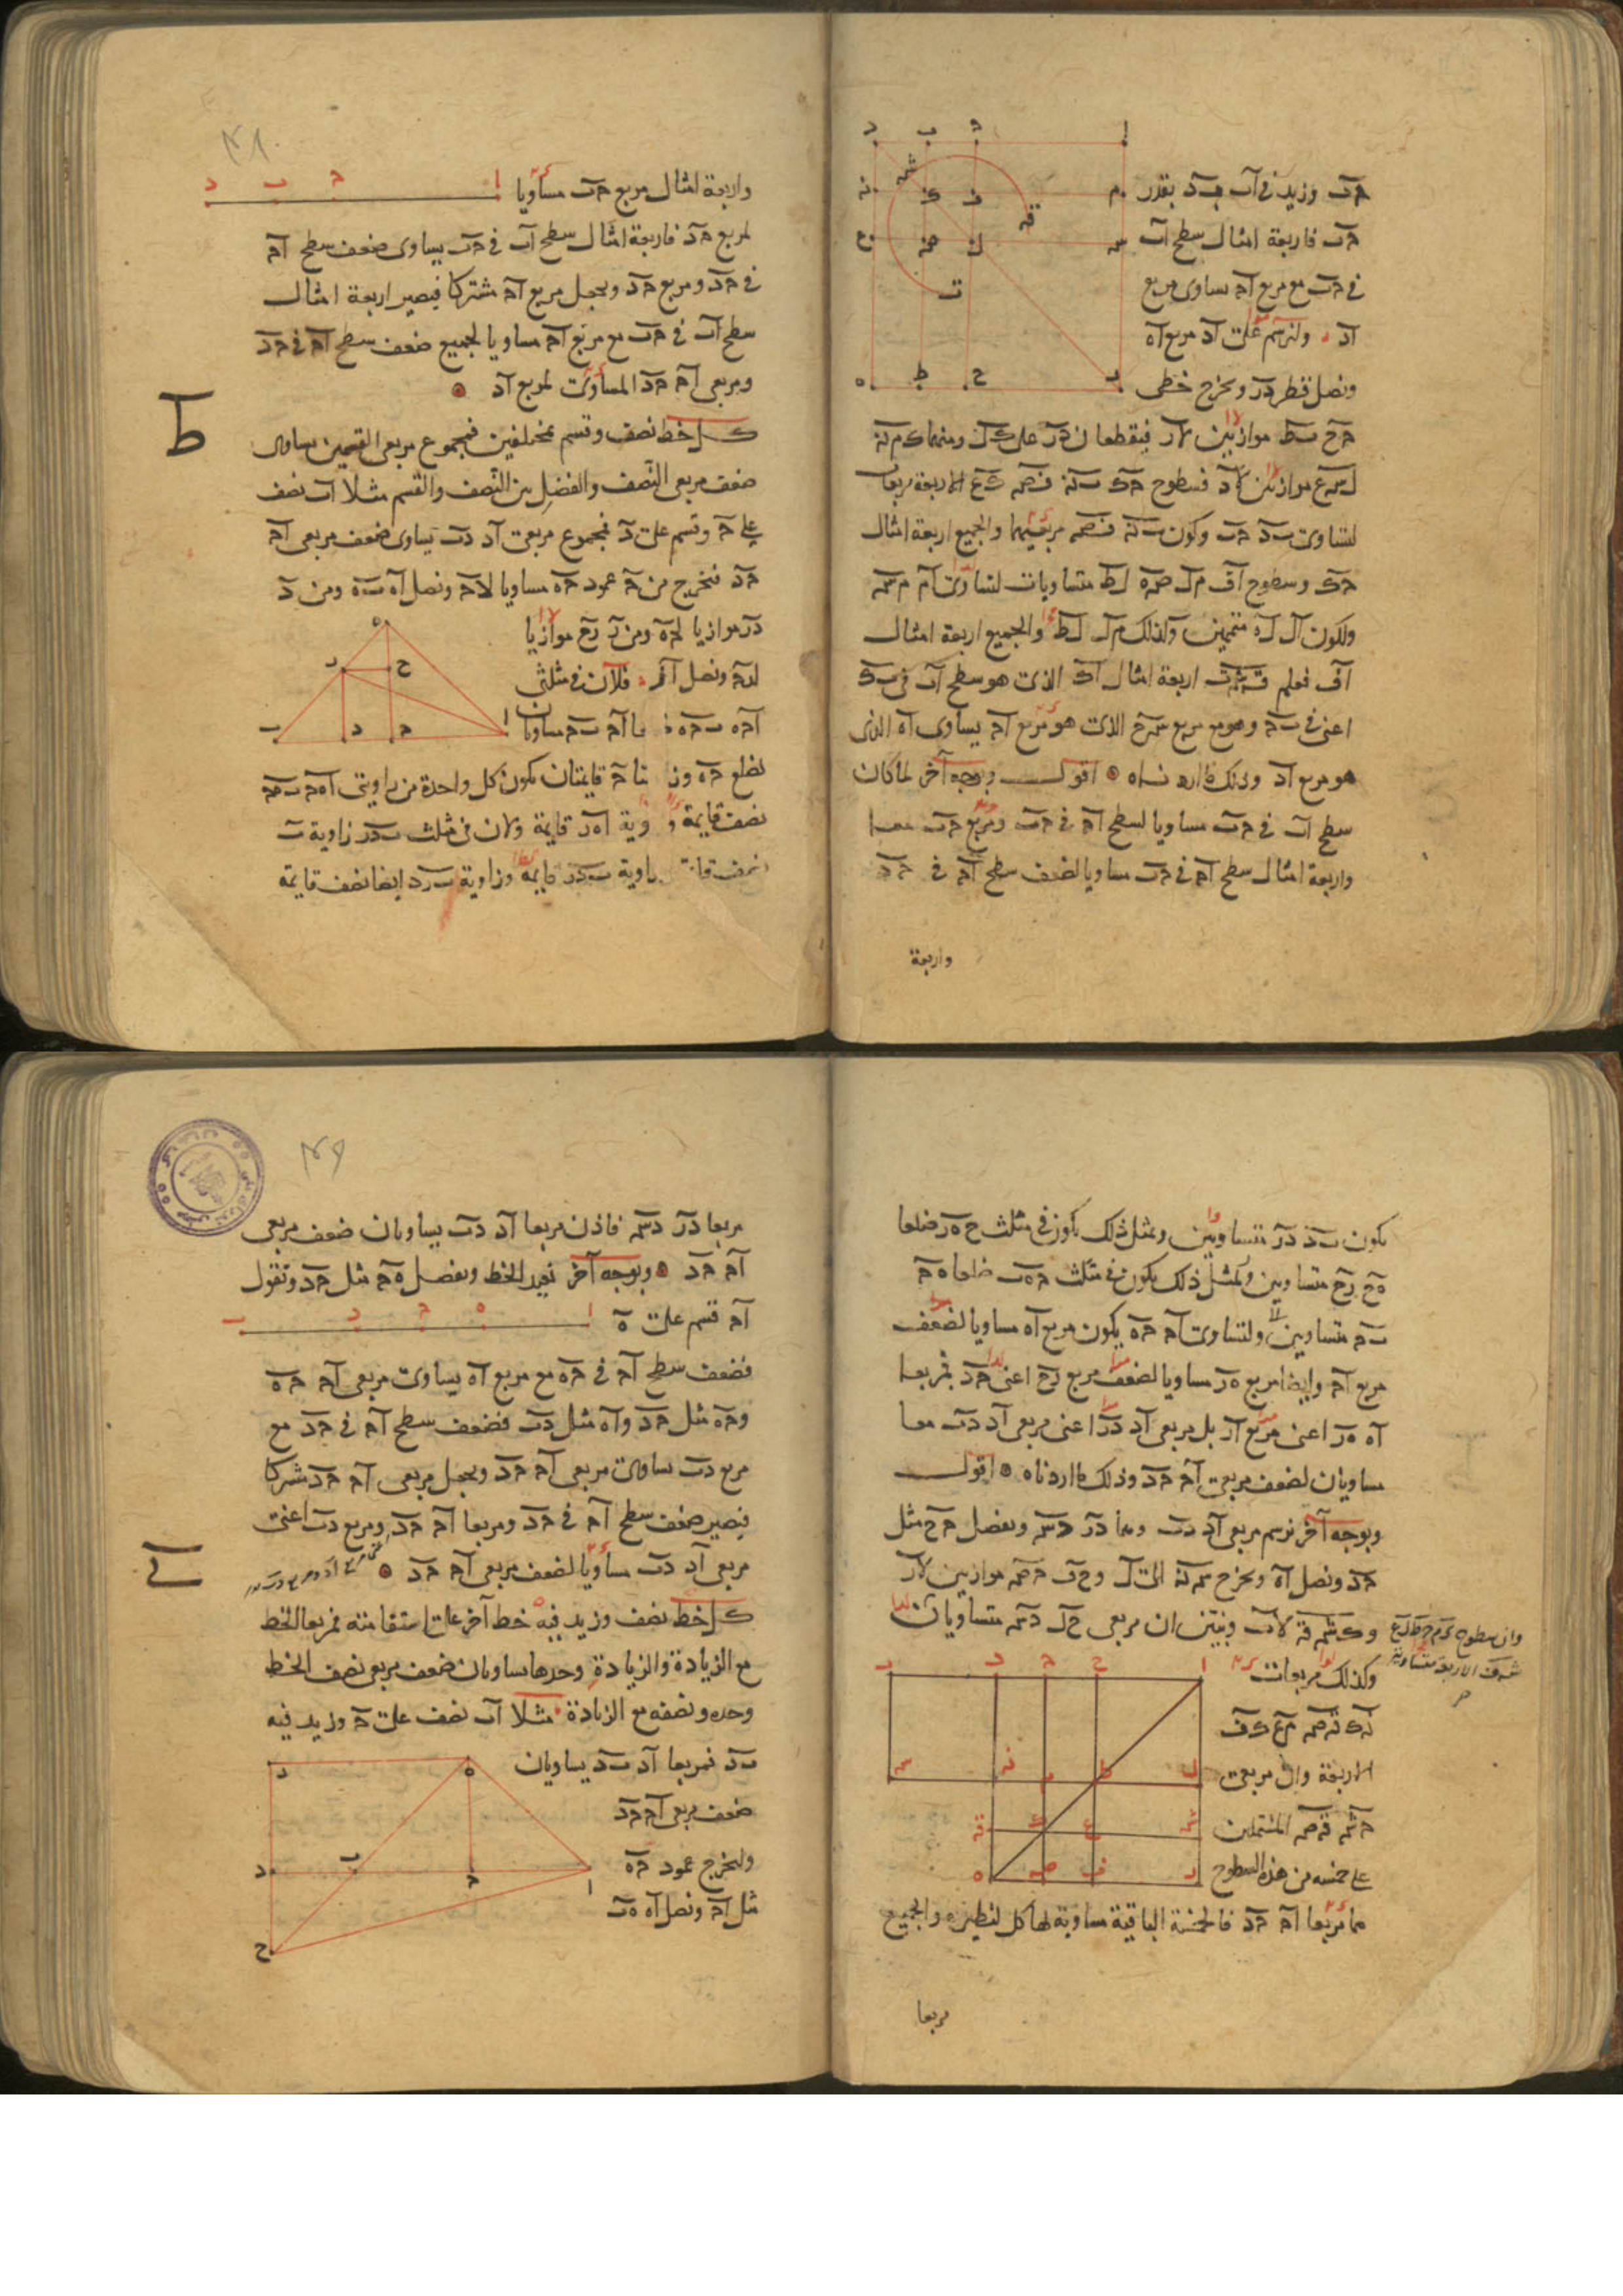 حب وزيد في اب بد بقدر
حب فاربعة امثال سطح اب
في حب مع مربع اح يساوى مربع
اد ولنرسم على اد مربع اه
ونصل قطر در ونخرج خطى
حح بط موازيين لار فيقطعان در على ك ل ومنهما ك م نه
ل سه ع موازيين لاد فسطوح حك ب نه ف صه ك ع الاربعة مربعات
لتساوى بد حب وكون ب نه ف صه مربعيهما والجميع اربعة امثال
حك وسطوح اف م ل صه ه ل ط متساويات لتساوى ام م سه
ولكون ال له متممين وكذلك م ل ل ط والجميع اربعة امثال
اف فعلم ق شه ت اربعة امثال اك الذى هو سطح اب فى ب ك
اعنى فى بح وهو مع مربع سه ح الذى هو مربع اح يساوى اه الذى
هو مربع اد وذلك ما اردناه اقول وبوجه آخر لما كان
سطح اب فى حب مساويا لسطح اح فى حب ومربع حب معا
واربعة امثال سطح اح فى حب مساويا لضعف سطح اح فى حد
واربعة
واربعة امثال مربع حب مساويا
لمربع حد فاربعة امثال سطح اب فى حب يساوى ضعف سطح اح
فى حد ومربع حد ويجعل مربع اح مشتركا فيصير اربعة امثال
سطح اب فى حب مع مربع اح مساويا لجميع ضعف سطح اح فى حد
ومربعى اح حد المساوى لمربع اد
ط
كل خط نصف وقسم بمختلفين فمجموع مربعى القسمين يساوى
ضعف مربعى النصف والفضل بين النصف والقسم مثلا اب نصف
على ح وقسم على د فمجموع مربعى اد دب يساوى ضعف مربعى اح
حد فنخرج من ح عمود حه مساويا لاح ونصل اه به ومن د
در موازيا لحه ومن ر رح موازيا
لاح ونصل ار فلان فى مثلثى
احه بحه اح بح مساويا
لضلع حه قايمتان يكون كل واحدة من زاويتى اه ح ب ه ح
نصف قايمة اه ر قايمة ولان فى مثلث ب د ر زاوية ب
نصف قايمة زاوية ب د ر قايمة وزاوية ب ر د ايضا نصف قايمة
يكون بد در متساويين وبمثل ذلك يكون فى مثلث ح ه ر ضلعا
ه ح رح متساويين وبمثل ذلك يكون فى مثلث ح ه ب ضلعا ه ح
بح متساويين ولتساوى اح حه يكون مربع اه مساويا لضعف
مربع اح وايضا مربع ه ر مساويا لضعف مربع رح اعنى حد فمربعا
اه ه ر اعنى مربع ار بل مربعى اد در اعنى مربعى اد دب معا
يساويان لضعف مربعى اح حد وذلك ما اردناه اقول
وبوجه آخر نرسم مربعى اد دب وهما در د سه ونفصل حح مثل
حد ونصل اه ونخرج سه نه الى ل و ح ف ح صه موازيين لار
و ك شه قه لاب وبين ان مربعى ح ل د سه متساويان
وكذلك مربعات
الاربعة وان مربعى
ح شه قه صه المشتملين
على خمسة من هذه السطوح
هما مربعا اح حد فالخمسة الباقية مساوية لها كل لنظيره والجميع
مربعا
مربعا در د سه فاذن مربعا اد دب يساويان ضعف مربعى
اح حد وبوجه آخر نعيد الخط ونفصل ه ح مثل حد ونقول
اح قسم على ه
فضعف سطح اح فى حه مع مربع اه يساوى مربعى اح حه
وحه مثل حد واه مثل دب فضعف سطح اح فى حد مع
مربع دب يساوى مربعى اح حد ويجعل مربعى اح حد مشتركا
فيصير ضعف سطح اح فى حد ومربعا اح حد ومربع دب اعنى
مربعى اد دب مساويا لضعف مربعى اح حد
ى
كل خط نصف وزيد فيه خط آخر على استقامته فمربعا الخط
مع الزيادة والزيادة وحدها يساويان ضعف مربعى نصف الخط
وحده ونصفه مع الزيادة مثلا اب نصف على ح وزيد فيه
بد فمربعا اد بد يساويان
ضعف مربعى اح حد
ولنخرج عمود حه
مثل اح ونصل اه ه ب